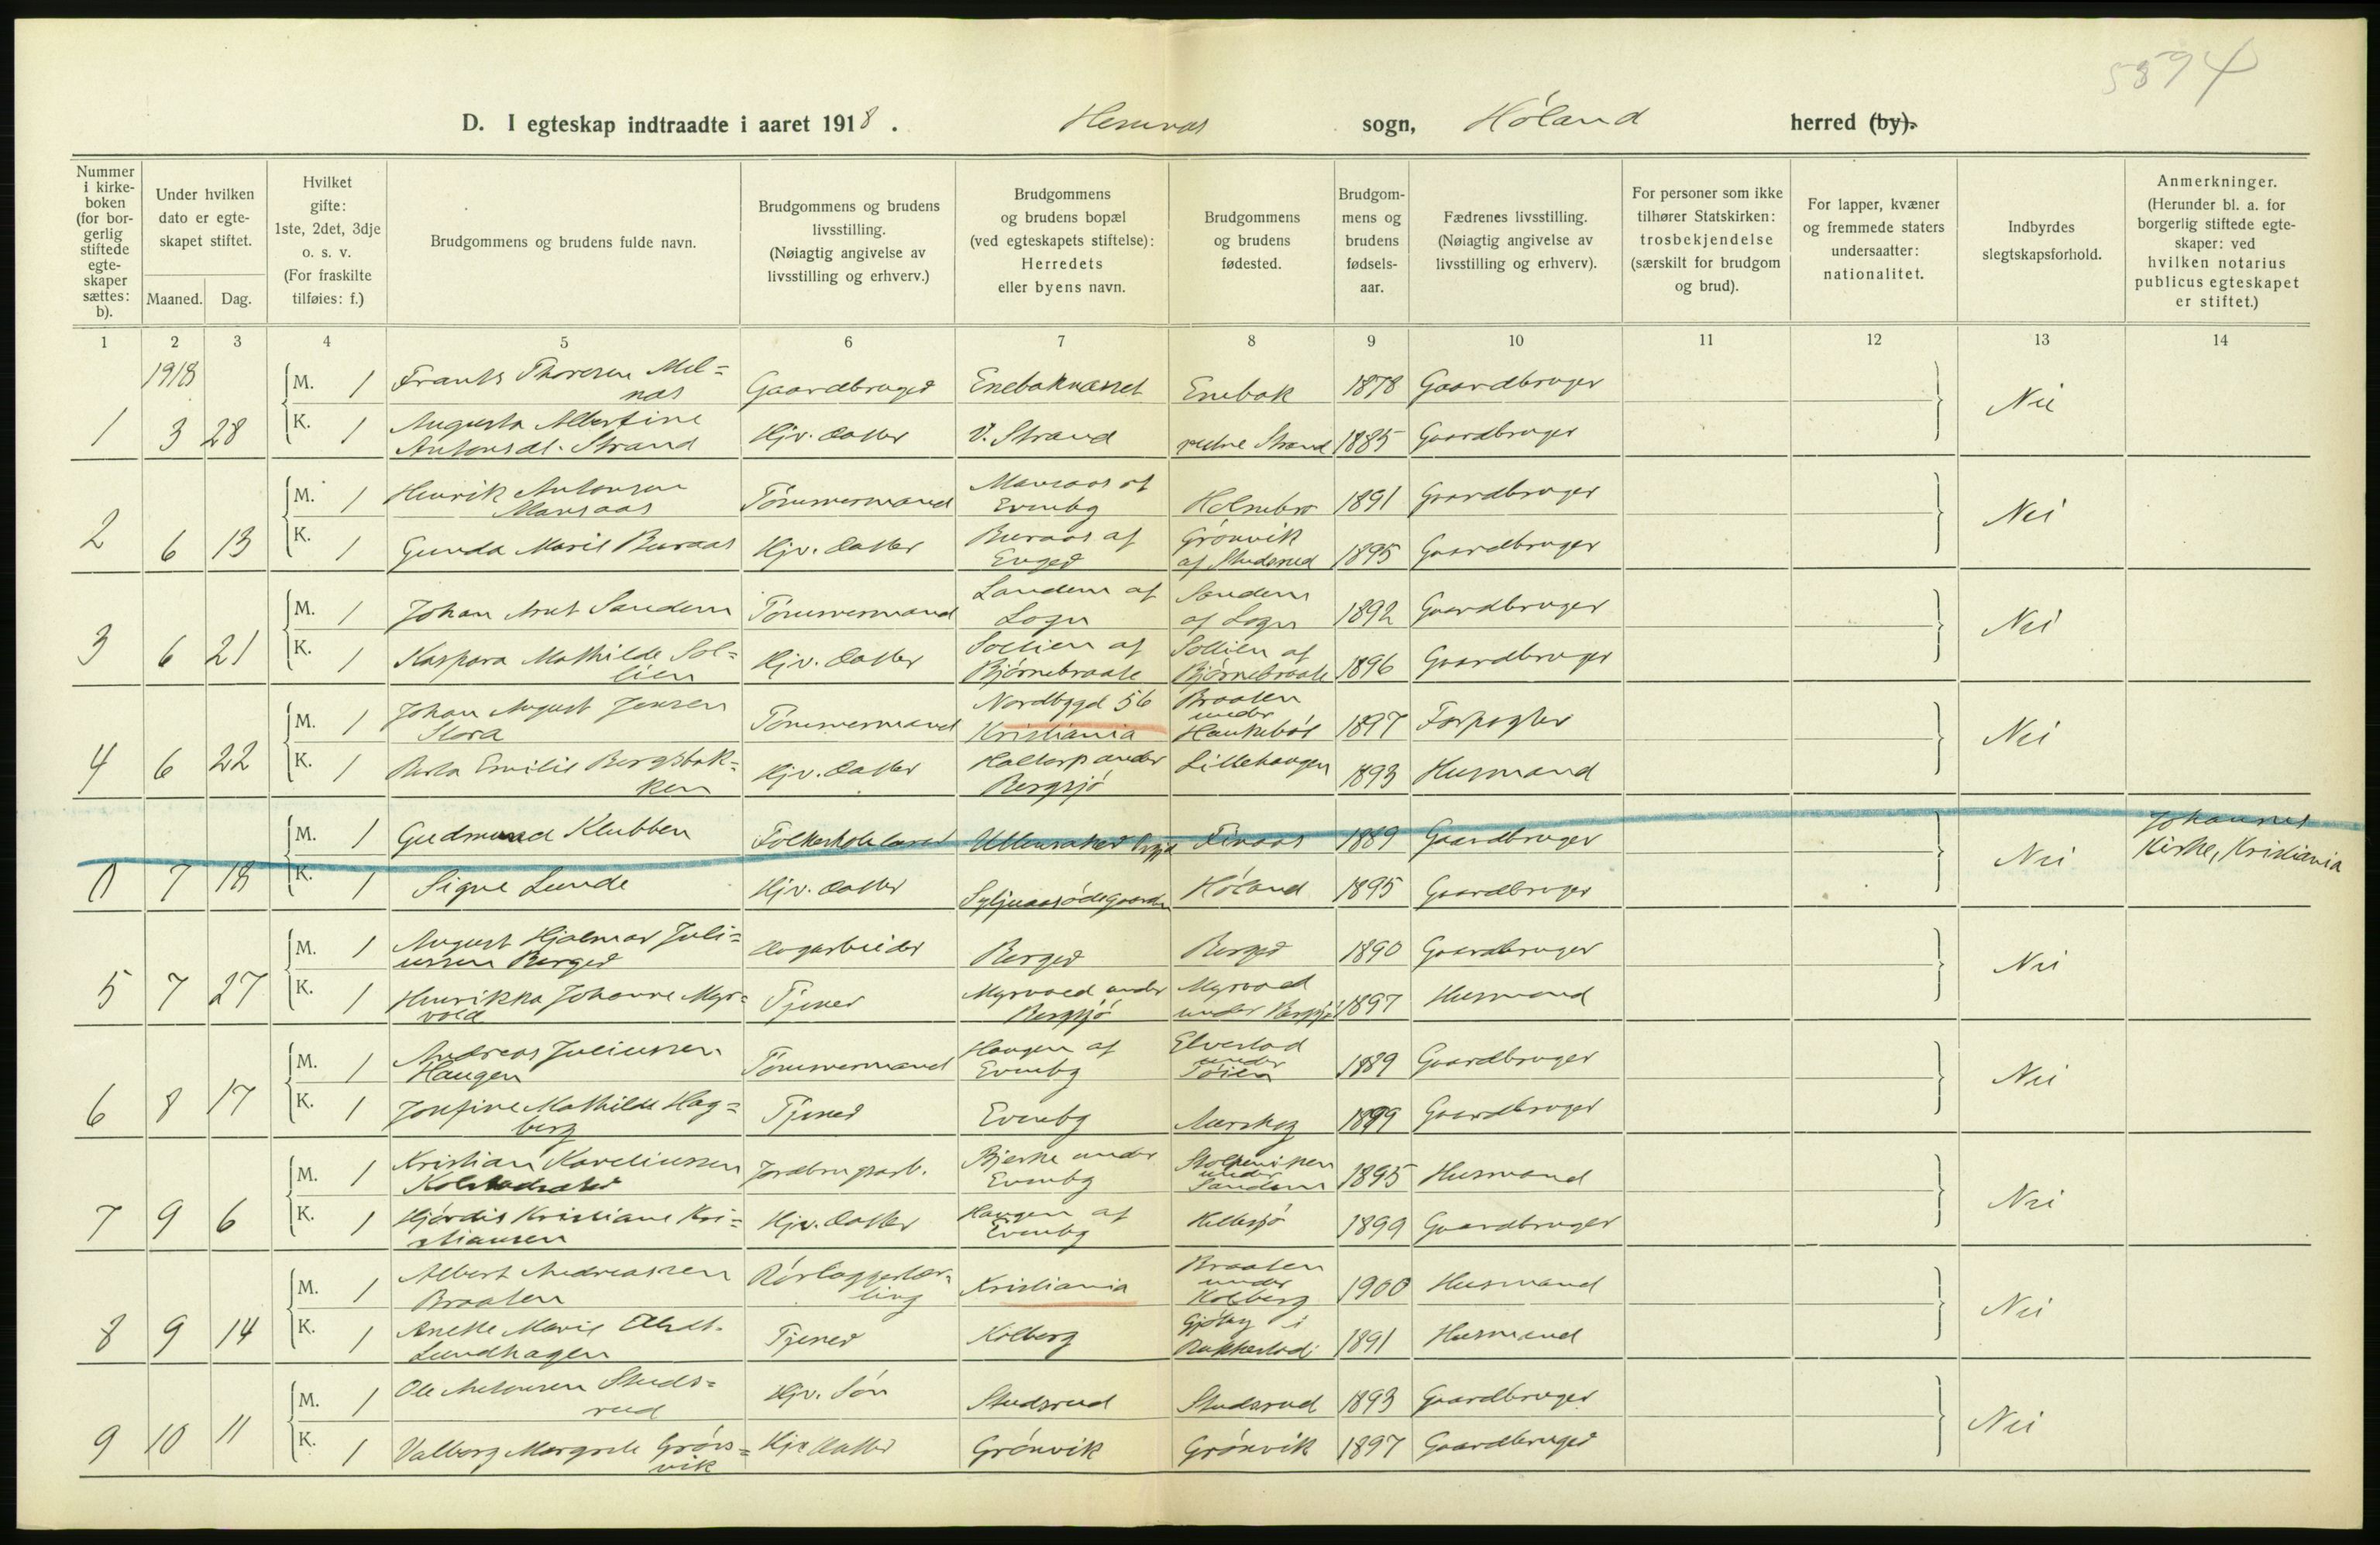 5894
D. I egteskap indtraadte i aaret 1918. Hemnes sogn, Høland herred (by).
Nummer i kirkeboken (for borgerlig stiftede egteskaper sættes: b).
Under hvilken dato er egteskapet stiftet.
Maaned. Dag.
Hvilket gifte: 1ste, 2det, 3dje o. s. v. (For fraskilte tilføies: f.)
Brudgommens og brudens fulde navn.
Brudgommens og brudens livsstilling. (Nøiagtig angivelse av livsstilling og erhverv.)
Brudgommens og brudens bopæl (ved egteskapets stiftelse): Herredets eller byens navn.
Brudgommens og brudens fødested.
Brudgommens og brudens fødselsaar.
Fædrenes livsstilling. (Nøiagtig angivelse av livsstilling og erhverv).
For personer som ikke tilhører Statskirken: trosbekjendelse (særskilt for brudgom og brud).
For lapper, kvæner og fremmede staters undersaatter: nationalitet.
Indbyrdes slegtskapsforhold.
Anmerkninger. (Herunder bl. a. for borgerlig stiftede egteskaper: ved hvilken notarius publicus egteskapet er stiftet.)
1 2 3 4 5 6 7 8 9 10 11 12 13 14
1918
M. 1 Frants Thoresen Melnes Gaardbruger Enebaknæsset Enebak 1878 Gaardbruger
1 3 28 K. 1 Augusta Albertine Antonsdt. Strand Hjv. datter V. Strand vestre Strand 1885 Gaardbruger Nei
M. 1 Henrik Antonsen Mansaas Tømmermand Mansaas af Evenby Holmebro 1891 Gaardbruger
2 6 13 K. 1 Gunda Marie Buraas Hjv. datter Buraas af Enger Grønvik af Studsrud 1895 Gaardbruger Nei
M. 1 Johan Arnt Sandem Tømmermand Sandem af Logn Sandem af Logn 1892 Gaardbruger
3 6 21 K. 1 Kaspara Mathilde Sollien Hjv. datter Sollien af Bjørnebraate Sollien af Bjørnebraate 1896 Gaardbruger Nei
M. 1 Johan August Jensen Slora Tømmermand Nordbygd 56 Kristiania Braaten under Haukebøl 1897 Forpagter
4 6 22 K. 1 Berta Emilie Bergsbakken Hjv. datter Holtorp under Bergsjø Lillehaugen 1893 Husmand Nei
M. 1 Gudmund Klubben Folkeskolelærer Ullensaker Finaas 1889 Gaardbruger Johannes Kirke, Kristiania
0 7 18 K. 1 Signe Lunde Hjv. datter Syljuaasødegaarden Høland 1895 Gaardbruger Nei
M. 1 August Hjalmar Juliussen Berger Dagarbeider Berger Berger 1890 Gaardbruger
5 7 27 K. 1 Henrikka Johanne Myrvold Tjener Myrvold under Bergsjø Myrvold under Bergsjø 1897 Husmand Nei
M. 1 Andreas Juliussen Haugen Tømmermand Haugen af Evenby Elvestad under Tøien 1889 Gaardbruger
6 8 17 K. 1 Josefine Mathilde Hagberg Tjener Evenby Aurskog 1899 Gaardbruger Nei
M. 1 Kristian Kareliussen Kolstadsæter Jordbrugsarb. Bjerke under Evenby Stolpeniken under Sandem 1895 Husmand
7 9 6 K. 1 Hjørdis Kristiane Kristiansen Hjv. datter Haugen af Evenby Killesjø 1899 Gaardbruger Nei
M. 1 Albert Andreassen Braaten Rørlæggerlærling Kristiania Braaten under Kolberg 1900 Husmand
8 9 14 K. 1 Anette Marie Olsdt. Lundhagen Tjener Kolberg Gjølby i Rakkestad 1891 Husmand Nei
M. 1 Ole Antonsen Studsrud Hjv. Søn Studsrud Studsrud 1893 Gaardbruger
9 10 11 K. 1 Valborg Margrete Grønvik Hjv datter Grønvik Grønvik 1897 Gaardbruger Nei